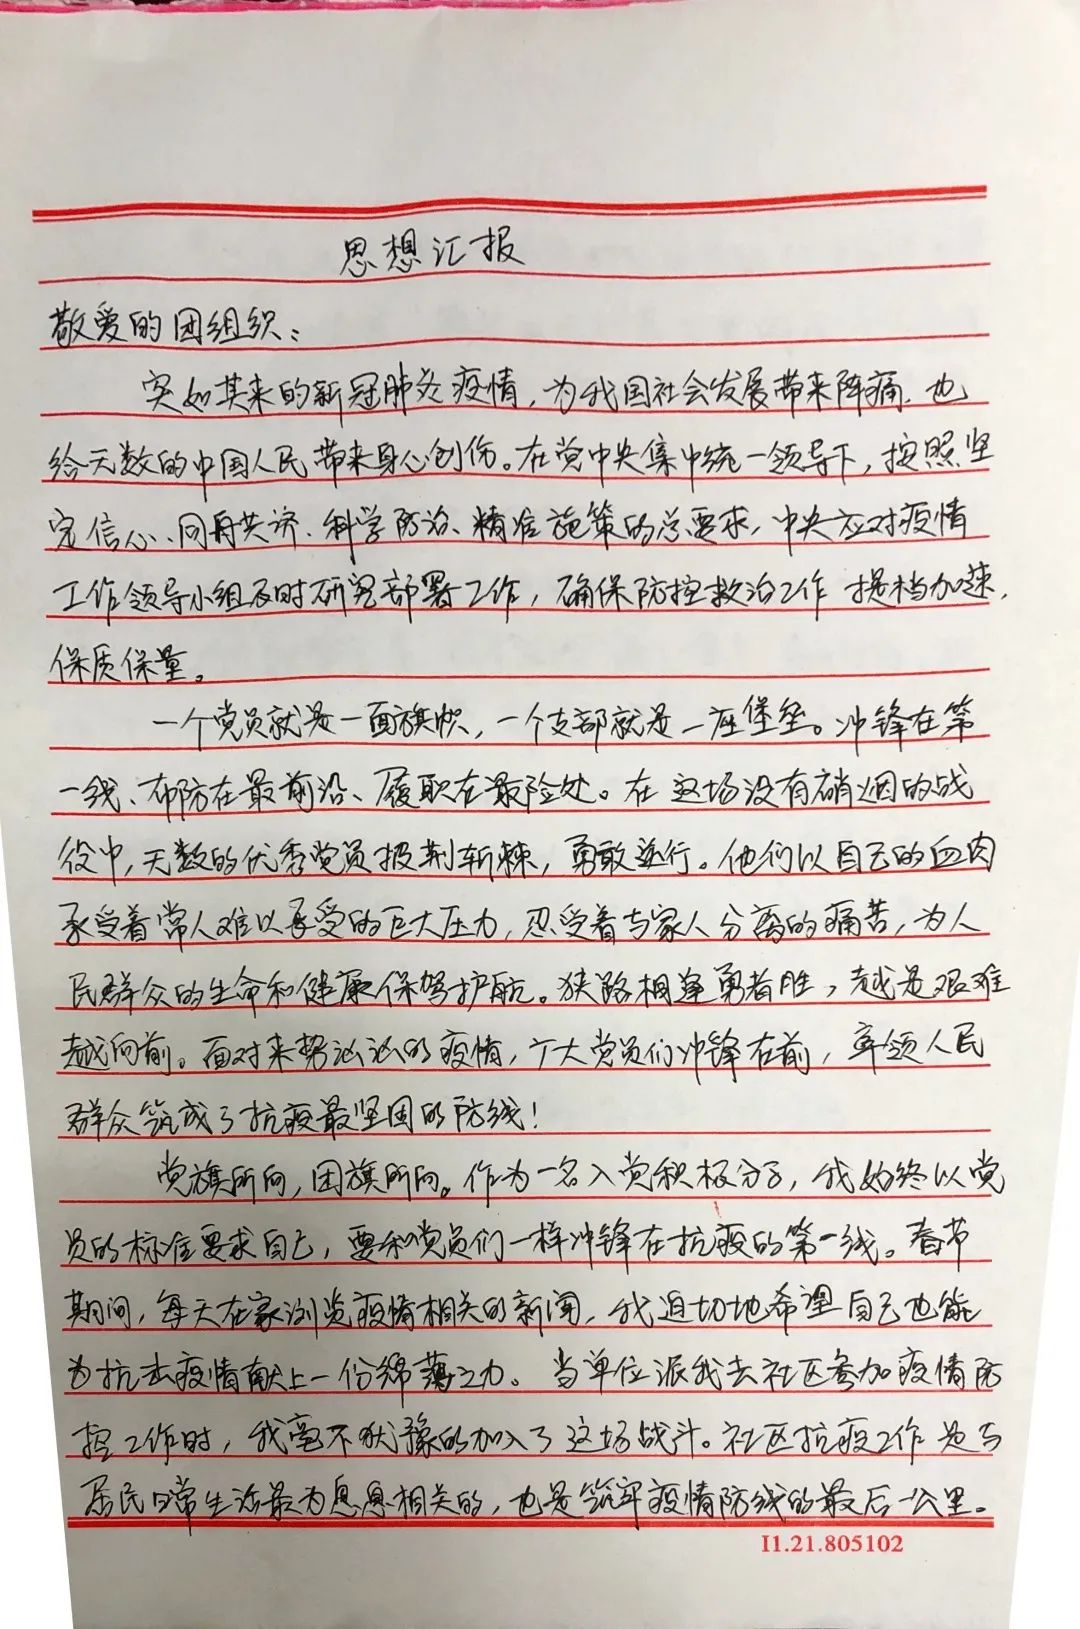 思想汇报
敬爱的团组织：
突如其来的新冠肺炎疫情，为我国社会发展带来阵痛，也
给无数的中国人民带来身心创伤。在党中央集中统一领导下，按照坚
定信心、同舟共济、科学防治、精准施策的总要求，中央应对疫情
工作领导小组及时研究部署工作，确保防控救治工作提档加速，
保质保量。
一个党员就是一面旗帜，一个支部就是一座堡垒。冲锋在第
一线、布防在最前沿、履职在最险处。在这场没有硝烟的战
役中，无数的优秀党员披荆斩棘，勇敢逆行。他们以自己的血肉
承受着常人难以承受的巨大压力，忍受着与家人分离的痛苦，为人
民群众的生命和健康保驾护航。狭路相逢勇者胜，越是艰难
越向前。面对来势汹汹的疫情，广大党员们冲锋在前，率领人民
群众筑成了抗疫最坚固的防线！
党旗所向，团旗所向。作为一名入党积极分子，我始终以党
员的标准要求自己，要和党员们一样冲锋在抗疫的第一线。春节
期间，每天在家浏览疫情相关的新闻，我迫切地希望自己也能
为抗击疫情献上一份绵薄之力。当单位派我去社区参加疫情防
控工作时，我毫不犹豫的加入了这场战斗。社区抗疫工作是与
居民日常生活最为息息相关的，也是筑牢疫情防线的最后一公里。
I1.21.805102